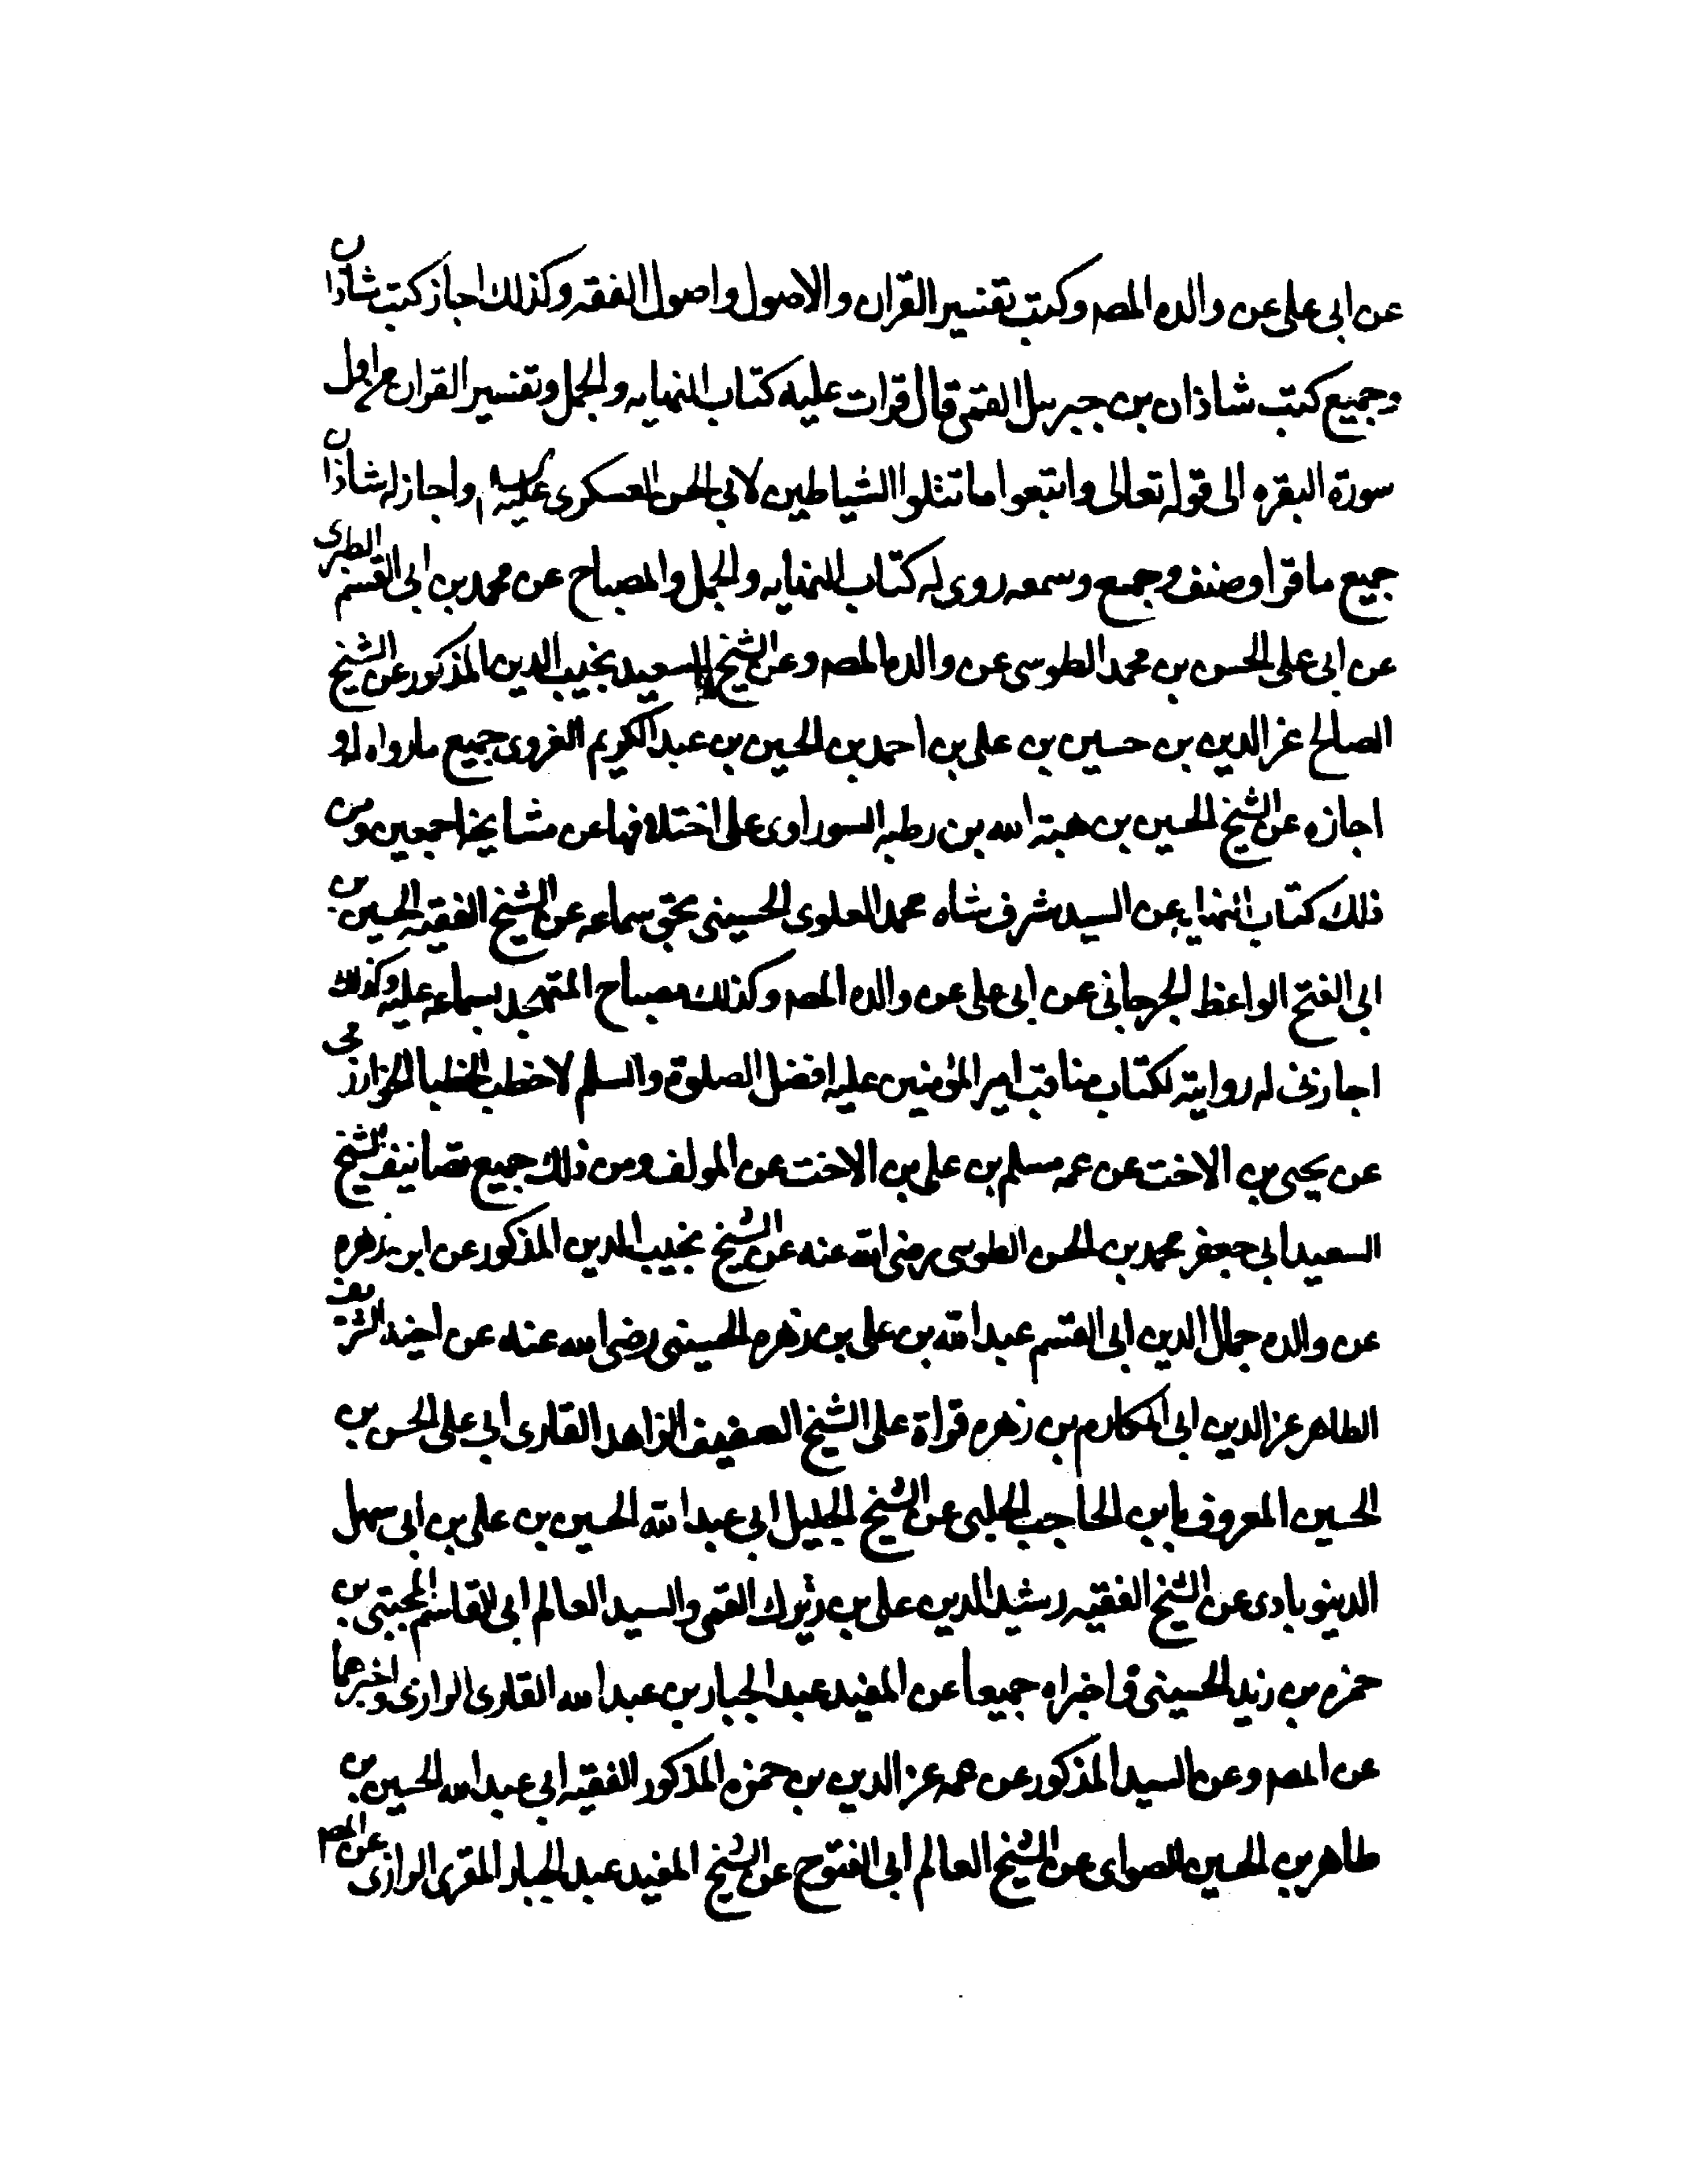 عن ابى على عن والده المصه وكتب تفسير القران والاصول واصول الفقه وكذلك اجاز كتب شاذان
وجميع كتب شاذان بن جبرييل القمى قال قرات عليه كتاب النهايه والجمل وتفسير القران من اول
سورة البقره الى قوله تعالى واتبعوا ما تتلوا الشياطين لابي الحسن العسكرى عليه واجاز له شاذان
جميع ما قرا وصنف وجمع وسمعه روى له كتاب النهايه والجمل والمصباح عن محمد بن ابى القسم الطبرى
عن ابى على الحسن بن محمد الطوسى عن والده المصه وعن الشيخ السعيد نجيب الدين المذكور عن الشيخ
الصالح عز الدين بن حسين بن على بن احمد بن الحسين بن عبد الكريم الغروى جميع ما رواه له
اجازه عن الشيخ الحسين بن هبة الله بن رطبه السوراوى على اختلافها عن مشايخه اجمعين ومن
ذلك كتاب النهايه عن السيد شرف شاه محمد العلوى الحسينى بحق سماعه عن الشيخ الفقيه الحسين بن
ابى الفتح الواعظ الجرجانى عن ابى على عن والده المصه وكذلك مصباح المتهجد بسماعه عليه وكذلك
اجازنى له روايته لكتاب مناقب امير المؤمنين عليه افضل الصلوة والسلم لاخطب الخطبا الخوارزمى
عن يحيى بن الاخت عن عمه مسلم بن على بن الاخت عن المولف ومن ذلك جميع تصانيف الشيخ
السعيد ابى جعفر محمد بن الحسن الطوسى رضى الله عنه عن الشيخ نجيب الدين المذكور عن ابن زهره
عن والده جمال الدين ابى القسم عبد الله بن على بن زهره الحسينى رضى الله عنه عن اخيه الشريف
الطاهر عز الدين ابى المكارم بن زهره قراة على الشيخ العفيف الزاهد القارى ابى على الحسن بن
الحسين المعروف بابن الحاجب الحلبى عن الشيخ الجليل ابى عبد الله الحسين بن على بن ابى سهل
الدينوبادى عن الشيخ الفقيه رشيد الدين على بن زيرك القمى والسيد العالم ابى القاسم المجتبى بن
حمزه بن زيد الحسينى فاخبراه جميعا عن المفيد عبد الجبار بن عبد الله القارى الرازى واخبرهما
عن المصه وعن السيد المذكور عن عمه عز الدين بن حمزه المذكور الفقيه ابى عبد الله الحسين بن
طاهر بن الحسين الصواى عن الشيخ العالم ابى الفتوح عن الشيخ المفيد عبد الجبار المقرى الرازى عن المصه